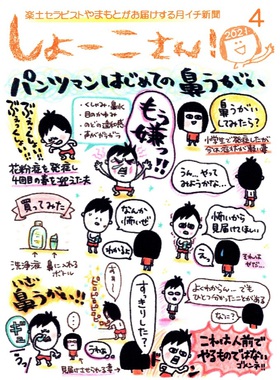 楽土セラピストやまもとがお届けする月イチ新聞
しょーこさん!
2021
4
パンツマンはじめての鼻うがい
・くしゃみ・鼻水
・目のかゆみ
・のどの違和感
・声がガラガラ
もう嫌っ!!
鼻うがい
してみたら?
花粉症を発症し
4回目の春を迎えた夫
小学生で発症したが
今は治まったが軽い妻
うん…やって
みようかな…
買ってみた
洗浄液
鼻に入る
ボトル
なんか
怖いぜ
わかるよ
怖いから
見届けてほしい
え…
いざ
鼻うがい!!
ギュ
すっきりした?
うわぁ
見届けさせられる妻→
よくわからん…でも
ひとつ分かったことがある
なに?
これは人前で
やるものではない
ゴメンネ!!